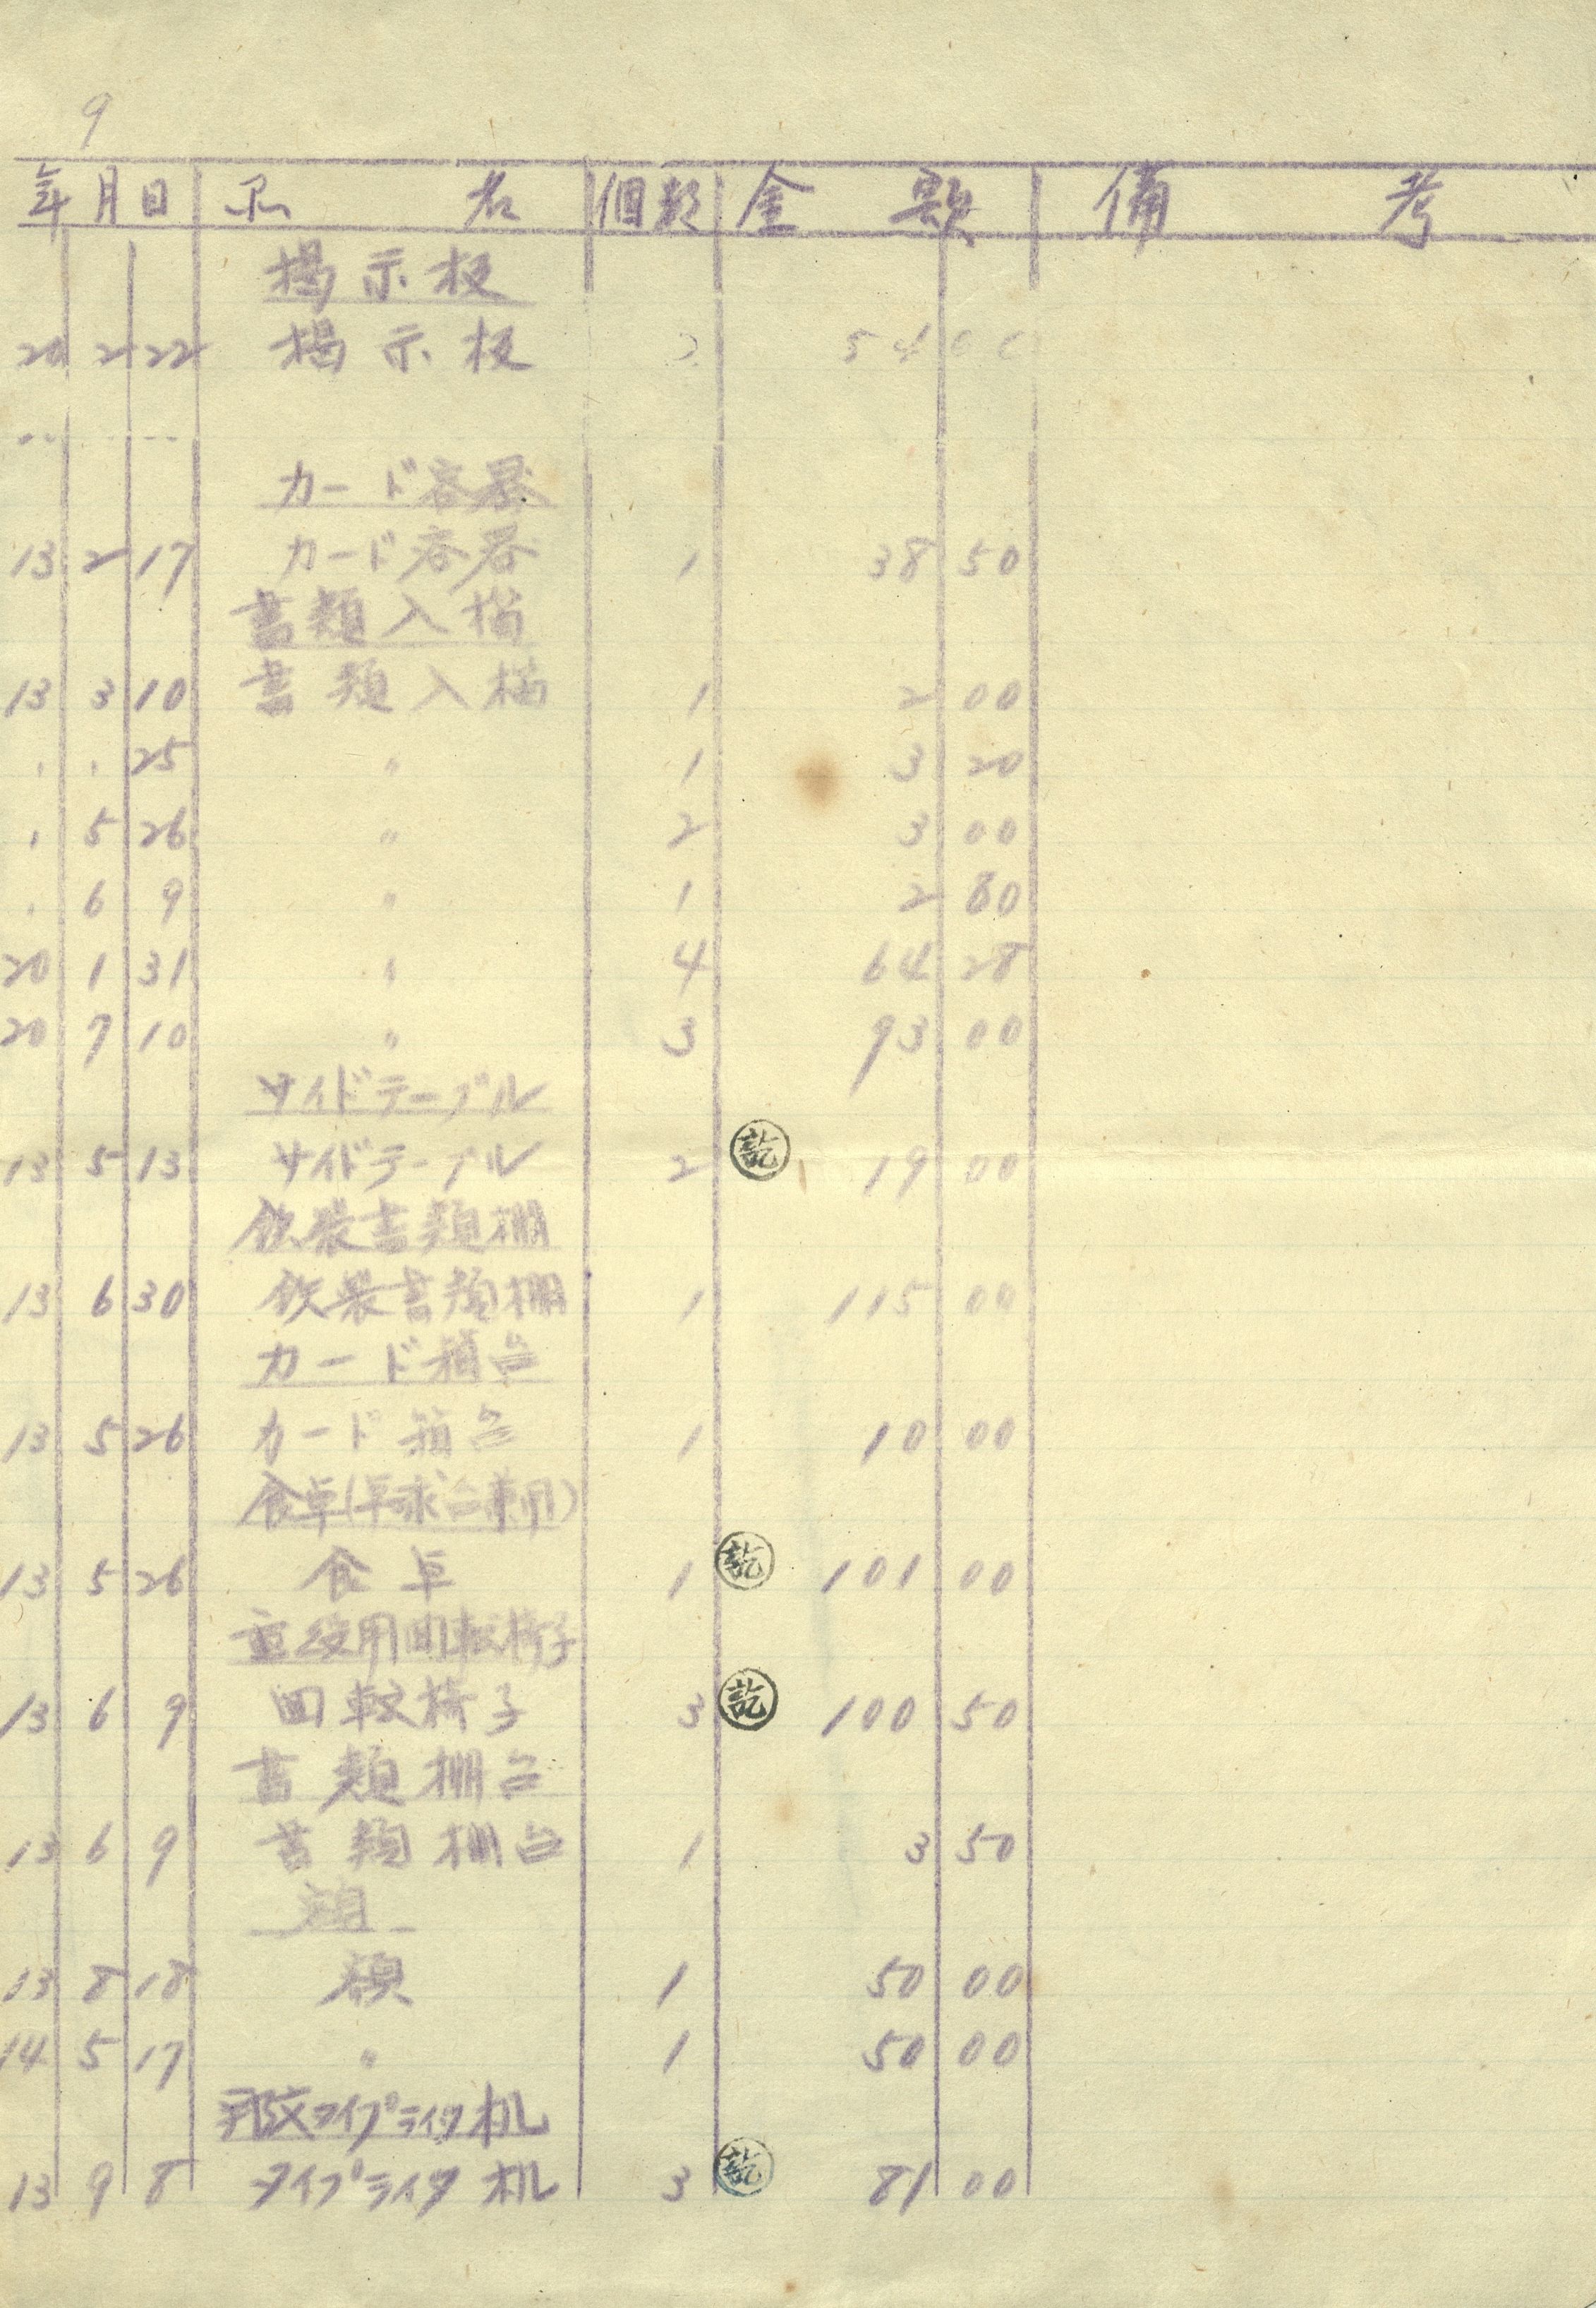 9
年月日 品名 個数 金額 備考
掲示板
20 2 22 掲示板 2 54 00
カード容器
13 2 17 カード容器 1 38 50
書類入箱
13 3 10 書類入箱 1 2 00
〃 〃 25 〃 1 3 20
〃 5 26 〃 2 3 00
〃 6 9 〃 1 2 80
20 1 31 〃 4 64 28
20 7 10 〃 3 93 00
サイドテーブル
13 5 13 サイドテーブル 2 訖 19 00
鉄製書類棚
13 6 30 鉄製書類棚 1 115 00
カード箱台
13 5 26 カード箱台 1 10 00
食卓(卓球台兼用)
13 5 26 食卓 1 訖 101 00
重役用回転椅子
13 6 9 回転椅子 3 訖 100 50
書類棚台
13 6 9 書類棚台 1 3 50
額
13 8 18 額 1 50 00
14 5 17 〃 1 50 00
邦文タイプライタ机
13 9 8 タイプライタ机 3 訖 81 00